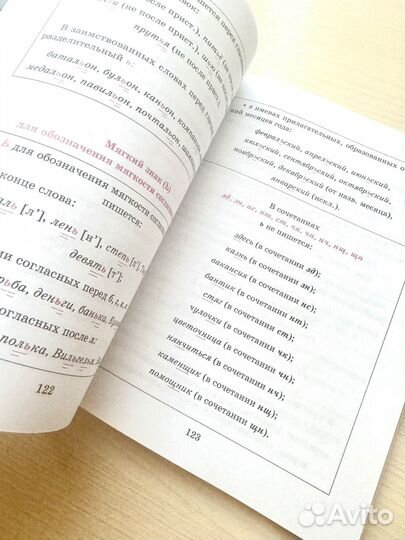 (не после прист.), питьё (не
прутья (не после прист.), шью (не после
В заимствованных словах перед
разделительный ь:
батальон, бульон, каньон,
медальон, павильон, почтальон,
Мягкий знак (Ь)
для обозначения мягкости
Ь для обозначения мягкости
пишется:
конце слова:
[л'], лень [н'], степь
девять [т'];
согласных перед
деньги, банька,
согласных после л:
полька,
122
• в именах прилагательных, образованных о
ний месяцев года:
февральский, апрельский, июньский,
июльский, сентябрьский, октябрьский,
ноябрьский, декабрьский (от назв. месяца).
январский (искл.).
В сочетаниях
зд, зн, нс, нт, ст, чк, чн, нч, нщ, щн
ь не пишется:
здесь (в сочетании зд);
казнь (в сочетании зн);
вакансия (в сочетании нс);
бантик (в сочетании нт);
стяг (в сочетании ст);
чулочки (в сочетании чк);
цветочница (в сочетании чн);
нянчиться (в сочетании нч);
каменщик (в сочетании нщ);
помощник (в сочетании щн).
123
Avito